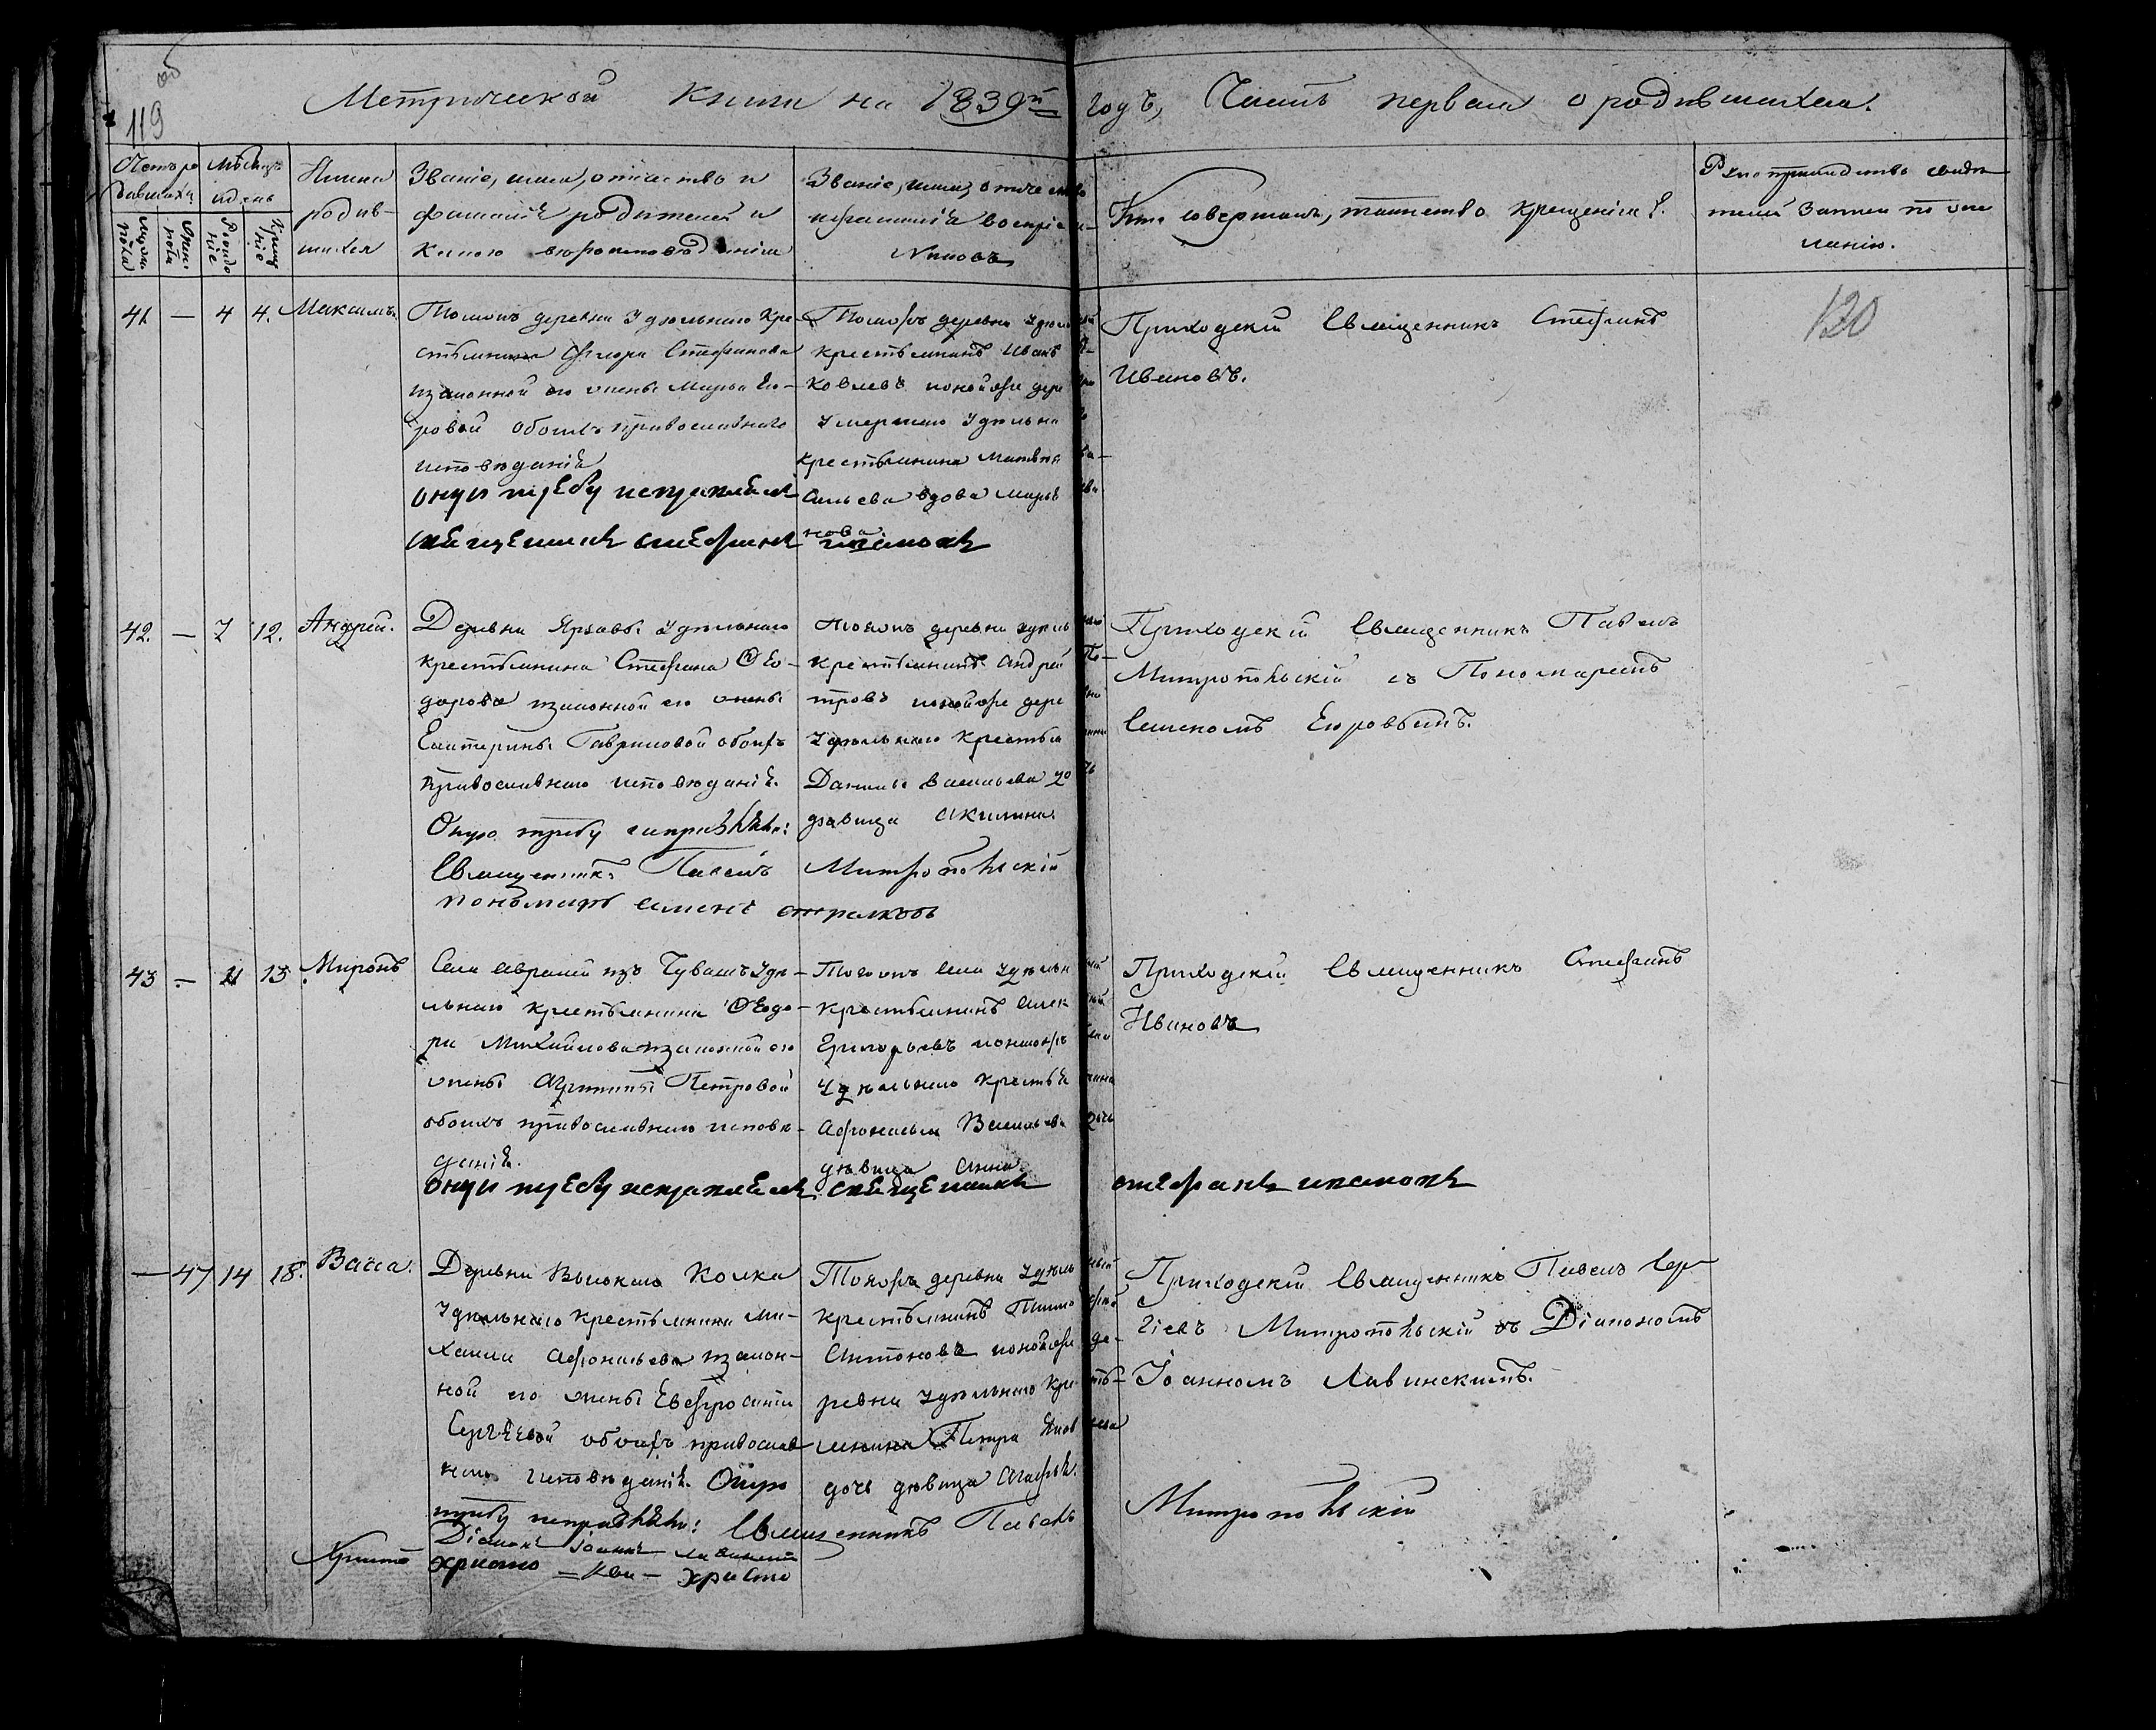 об
119
Метрической книги на 1839й годъ, Часть первая о родившихся.
Счетъ ро
дившихся
Мужеска
пола
Женска
пола
Мѣсяцъ
и день
Рожде
ніе
Креще
ніе
Имена
родив-
шихся
Званіе, имя, отчество и
фамилія родителей и
какого вѣроисповѣданія
Званіе, имя, отчество
и фамилія воспріем-
никовъ
Кто совершалъ таинство крещенія
Рукоприкладство свидѣ
телей записи по же
ланію.
130
41 — 4 4. Максимъ.
Тояжъ деревни Удѣльнаго кре-
стьянина Стефанова
и законной его жены Марьи Его-
ровой обоихъ православнаго
исповѣданія
оную требу исправлялъ
священникъ стефанъ ивановъ
Тояжъ деревни Удѣльный
крестьянинъ Иванъ Я-
ковлевъ и той же дере
Умершаго Удѣльна
крестьянина Матвея Ва-
сильева вдова Марья
нова
Приходскій Священникъ Стефанъ
Ивановъ.
42. — 7 12. Андрей.
Деревни Удѣльнаго
крестьянина Стефана Ѳео-
дорова и законной его жены
Екатерины Гавриловой обоихъ
православнаго исповѣданія.
Оную требу исправляли:
Священникъ Павелъ Митропольскій
пономарь Семенъ
Тояжъ деревни удѣльный
крестьянинъ Андрей Пе-
тровъ и той же дере
Удѣльнаго крестья
Данилы Васильева до
дѣвица Акилина
Приходскій Священникъ Павелъ
Митропольскій съ Пономаремъ
Семеномъ Егоровымъ.
43 — 11 13. Миронъ
Села изъ Чувашъ Удѣ-
льнаго крестьянина Ѳеодо-
ра Михайлова и законной его
жены Агрипины Петровой
обоихъ православнаго исповѣ-
данія.
оную требу исправлялъ священникъ стефанъ ивановъ
Тогожъ Села Удѣльный
крестьянинъ Алек
Григорьевъ и
Удѣльнаго крестья
Афонасья Васильева дочь
дѣвица Анна
Приходскій Священникъ Стефанъ
Ивановъ
— 47 14 18. Васса.
Деревни Высокаго Колка
Удѣльнаго крестьянина Ми-
хаила Афонасьева и закон-
ной его жены Евфросиніи
Сергѣевой обоихъ православ
наго исповѣданія. Оную
требу исправляли: Священникъ Павелъ Митропольскій
Діаконъ Іоаннъ Лавинскій
Тояжъ деревни Удѣльный
крестьянинъ Тимофей
Антоновъ и той же де-
ревни Удѣльнаго кресть-
янина Петра
дочь дѣвица Агафья.
Приходскій Священникъ Павелъ Сер
гіевъ Митропольскій съ Діакономъ
Іоанномъ Лавинскимъ.
Христо христо — Христо